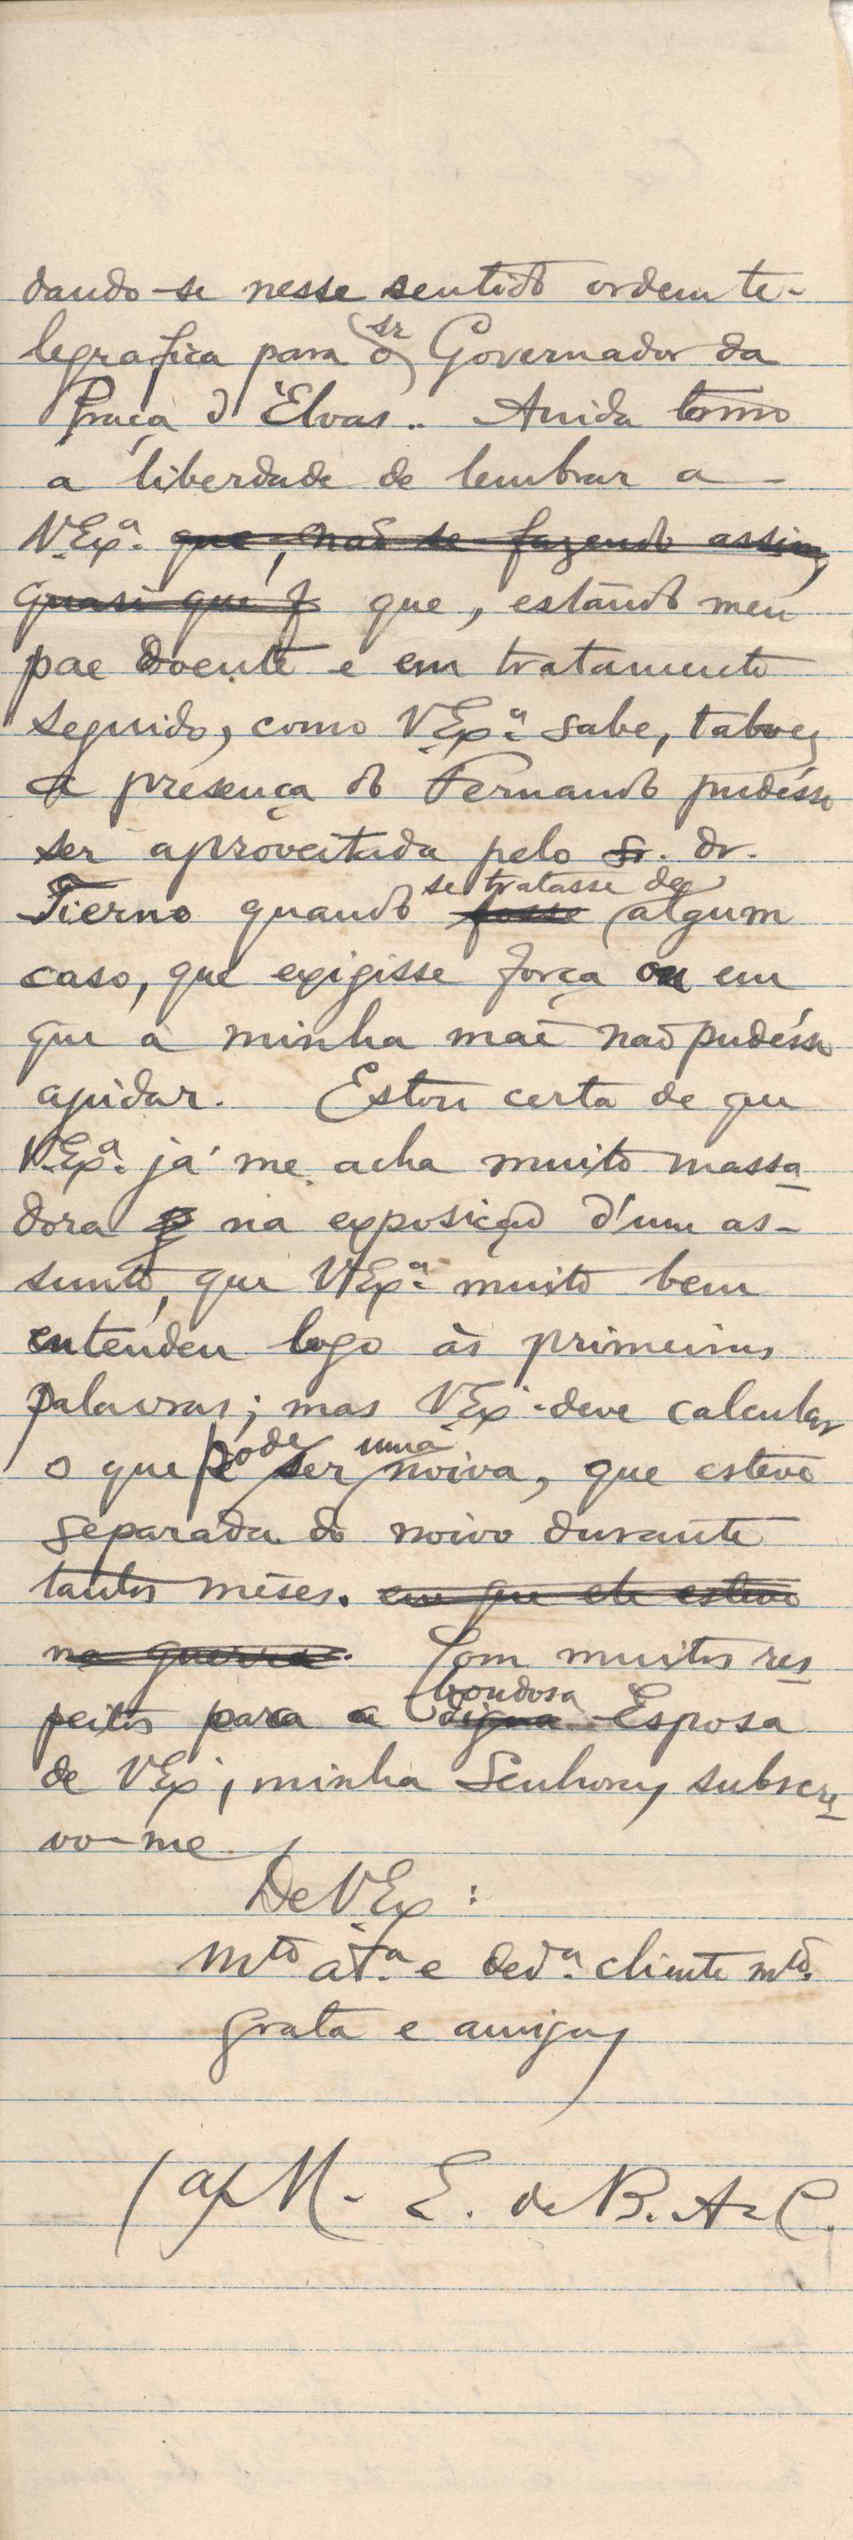 dando-se nesse sentido ordem te-
legrafica para o sr Governador da
Praça d'Elvas.. Ainda tomo
a liberdade de lembrar a -
V. Exª. que, não se fazendo assim,
quasi que f que, estando meu
pae doente e em tratamento
seguido, como V. Exª. sabe, talvez
a presença do Fernando pudésse
ser aproveitada pelo sr. dr.
Tierno quando fosse se tratasse de algum
caso, que exigisse força ou em
que a minha mãe não pudésse
ajudar. Estou certa de que
V. Exª. já me acha muito massa-
dora na exposição d'um as-
sunto, que V. Exª. muito bem
entendeu logo às primeiras
palavras; mas V. Exª. deve calcular
o que pode ser uma noiva, que esteve
separada do noivo durante
tantos mêses. em que ele esteve
na guerra. Com muitos res-
peitos para a digna bondosa Esposa
de V. Exª, minha Senhora, subscre-
vo-me
De V. Exª:
Mto atª. e dedª. cliente mtº.
grata e amiga,
(a) M. E. de B. A. C.